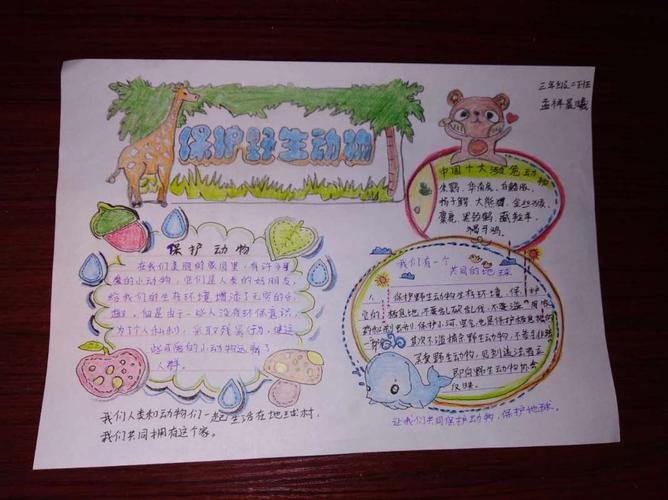 三年级二班
孟祥晨曦
保护野生动物
中国十大濒危动物
朱鹮、华南虎、白鳍豚、
扬子鳄、大熊猫、金丝猴、
麋鹿、黑颈鹤、藏羚羊、
褐马鸡。
保护动物
在我们美丽的家园里,有许多可
爱的小动物,它们是人类的好朋友,
给我们的生存环境增添了无穷的乐
趣。但是由于一些人没有环保意识,
为了个人私利,采取残害行动,使这
些可爱的小动物远离了
人群。
我们人类和动物们一起生活在地球村,
我们共同拥有这个家。
我们有一个
共同的地球
1、保护野生动物的生存环境,保护
它们的栖息地,不要乱砍乱伐,不要滥
保护小河,
其次不滥捕杀野生动物,不要非法
买卖野生动物,见到违法者立
即向野生动物协会
反映。
让我们共同保护动物,保护地球。